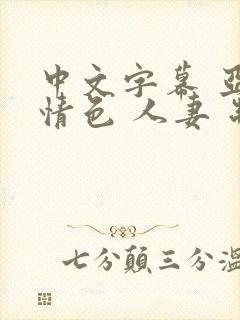 中文字幕
情色 人妻
七分顛三分溫